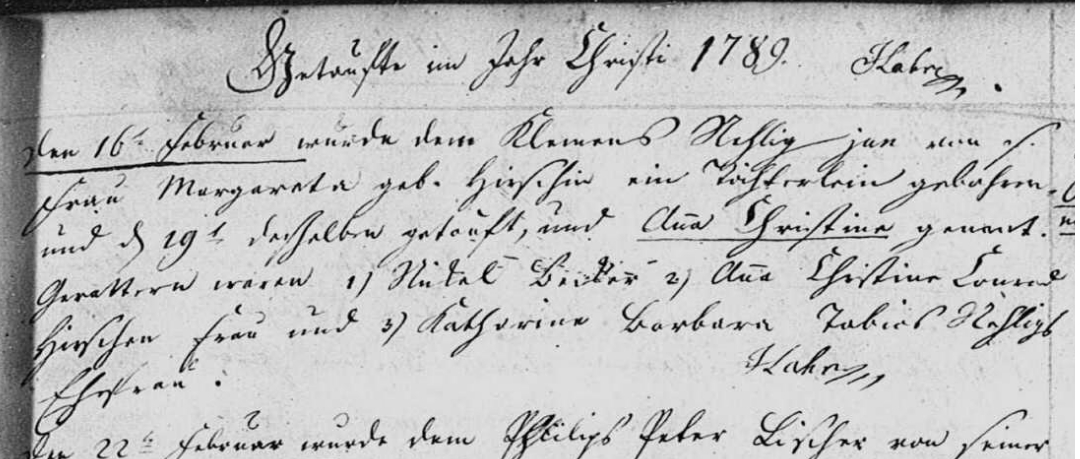 Getaufte im Jahr Christi 1789.
den 16t Februar wurde dem Klemens Nehlig jun von s.
Frau Margareta geb. Hirschin ein Töchterlein gebohren,
und d 19t desselben getauft, und Anna Christine genant.
Gevattern waren 1) Nickel Becker 2) Anna Christine Conrad
Hirschen Frau und 3) Katharine Barbara Tobias Nehligs
Ehefrau.
den 22t Februar wurde dem Philips Peter Lischer von seiner